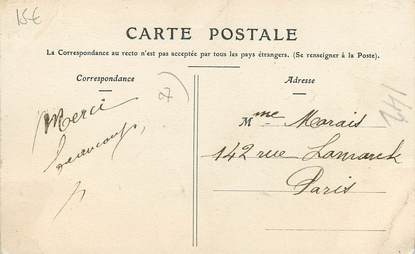 15€
CARTE POSTALE
La Correspondance au recto n'est pas acceptée par tous les pays étrangers. (Se renseigner à la Poste).
Correspondance
Adresse
Merci
beaucoup,
Mme Marais
142 rue Lamarck
Paris